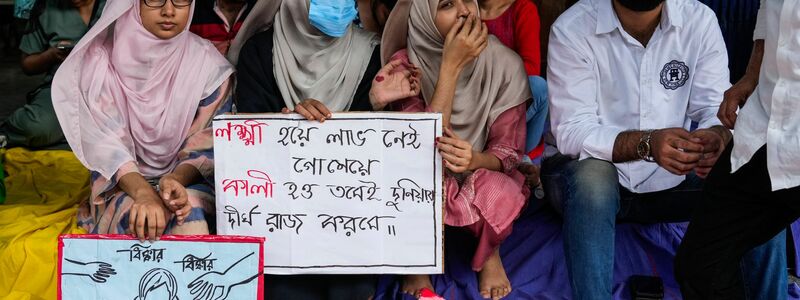 লক্ষ্মী হয়ে লাভ নেই
গো মেয়ে
কালী হও তবেই দুনিয়ার
দীর্ঘ রাজ করবে।।
ধিক্কার ধিক্কার